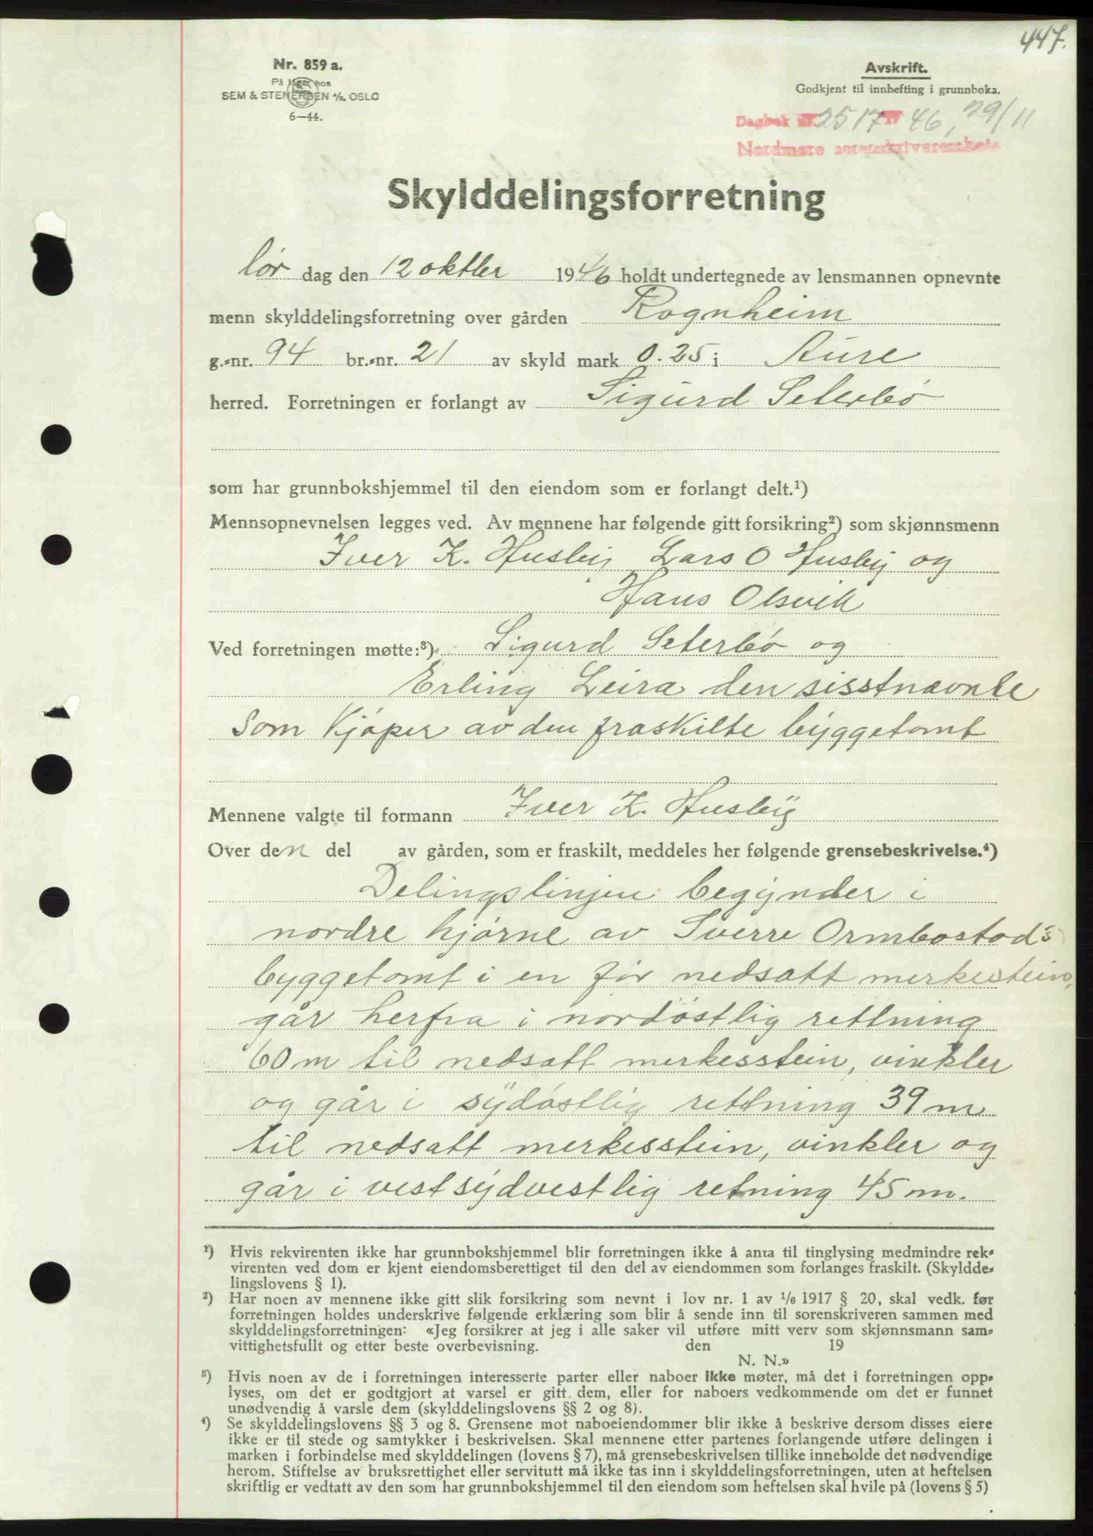 447.
Nr. 859 a.
På lager hos
SEM & STENERSEN A/S, OSLO
6—44.
Avskrift.
Godkjent til innhefting i grunnboka.
Dagbok nr. 2517 1946, 29/11
Nordmøre sorenskriverembete
Skylddelingsforretning
lør dag den 12 oktber 1946 holdt undertegnede av lensmannen opnevnte
menn skylddelingsforretning over gården Rognheim
g.-nr. 94 br.-nr. 21 av skyld mark 0.25 i Aure
herred. Forretningen er forlangt av Sigurd Seterbø
som har grunnbokshjemmel til den eiendom som er forlangt delt.¹)
Mennsopnevnelsen legges ved. Av mennene har følgende gitt forsikring²) som skjønnsmenn
Iver K. Husby, Lars O Husby og
Hans Olsvik
Ved forretningen møtte:³) Sigurd Seterbø og
Erling Leira den sisstnævnte
som kjøper av den fraskilte byggetomt
Mennene valgte til formann Iver K. Husby
Over den del av gården, som er fraskilt, meddeles her følgende grensebeskrivelse.⁴)
Delingslinjen begynder i
nordre hjørne av Sverre Ormbostad's
byggetomt i en før nedsatt merkestein,
går herfra i nordøstlig rettning
60 m til nedsatt merkesstein, vinkler
og går i sydøstlig rettning 39 m
til nedsatt merkesstein, vinkler og
går i vestsydvestlig retning 45 m.
¹) Hvis rekvirenten ikke har grunnbokshjemmel blir forretningen ikke å anta til tinglysing medmindre rek-
virenten ved dom er kjent eiendomsberettiget til den del av eiendommen som forlanges fraskilt. (Skyldde-
lingslovens § 1).
²) Har noen av mennene ikke gitt slik forsikring som nevnt i lov nr. 1 av 1/6 1917 § 20, skal vedk. før
forretningen holdes underskrive følgende erklæring som blir å sende inn til sorenskriveren sammen med
skylddelingsforretningen: «Jeg forsikrer at jeg i alle saker vil utføre mitt verv som skjønnsmann sam-
vittighetsfullt og etter beste overbevisning. den 19
N. N.»
³) Hvis noen av de i forretningen interesserte parter eller naboer ikke møter, må det i forretningen opp-
lyses, om det er godtgjort at varsel er gitt dem, eller for naboers vedkommende om det er funnet
unødvendig å varsle dem (skylddelingslovens §§ 2 og 8).
⁴) Se skylddelingslovens §§ 3 og 8. Grensene mot naboeiendommer blir ikke å beskrive dersom disses eiere
ikke er til stede og samtykker i beskrivelsen. Skal mennene etter partenes forlangende utføre delingen i
marken i forbindelse med skylddelingen (lovens § 7), må grensebeskrivelsen tillike inneholde det nødvendige
herom. Stiftelse av bruksrettighet eller servitutt må ikke tas inn i skylddelingsforretningen, uten at heftelsen
skriftlig er vedtatt av den som har grunnbokshjemmel til den eiendom som heftelsen skal hvile på (lovens § 5)